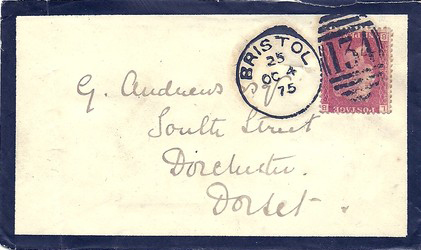 BRISTOL
25
OC 4
75
134
POSTAGE
G. Andrews Esqre
South Street
Dorchester
Dorset.